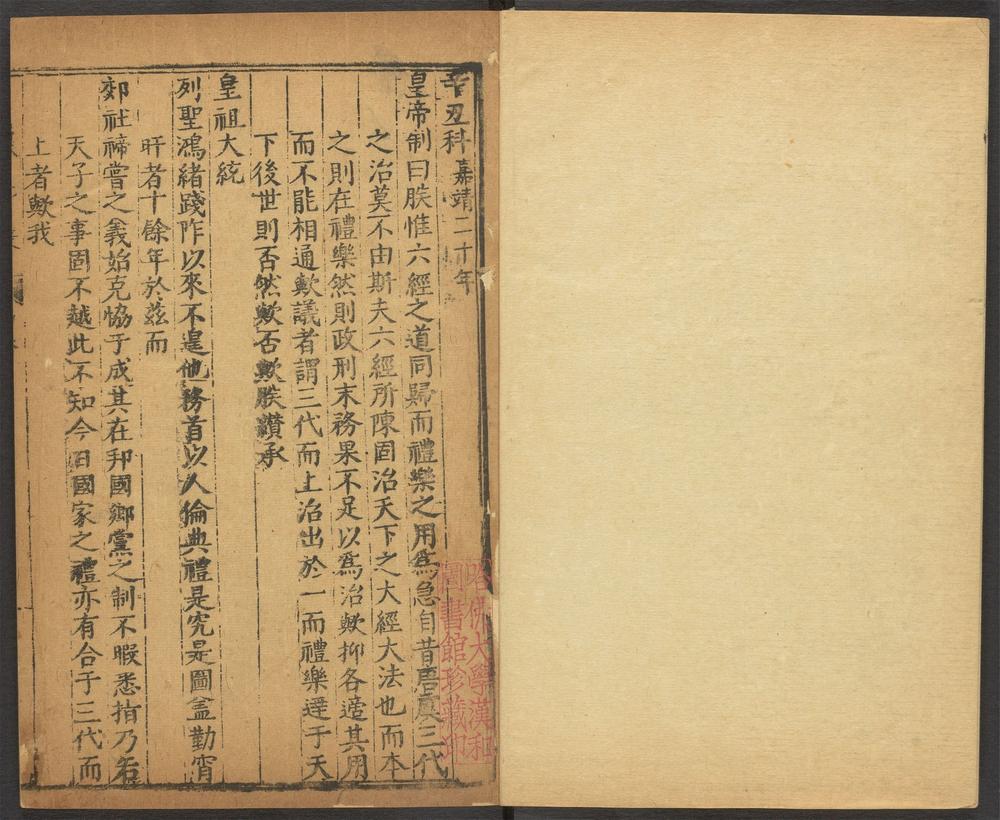 辛丑科嘉靖二十年
皇帝制曰朕惟六經之道同歸而禮樂之用爲急自昔唐虞三代
之治莫不由斯夫六經所陳固治天下之大經大法也而本
之則在禮樂然則政刑末務果不足以爲治歟抑各適其用
而不能相通歟議者謂三代而上治出於一而禮樂達于天
下後世則否然歟否歟朕纘承
皇祖大統
列聖鴻緒踐阼以來不遑他務首以人倫典禮是究是圖盖勤宵
旰者十餘年於茲而
郊社禘嘗之義始克恊于成其在邦國鄉黨之制不暇悉指乃若
天子之事固不越此不知今日國家之禮亦有合于三代而
上者歟我
哈佛大學漢和
圖書館珍藏印